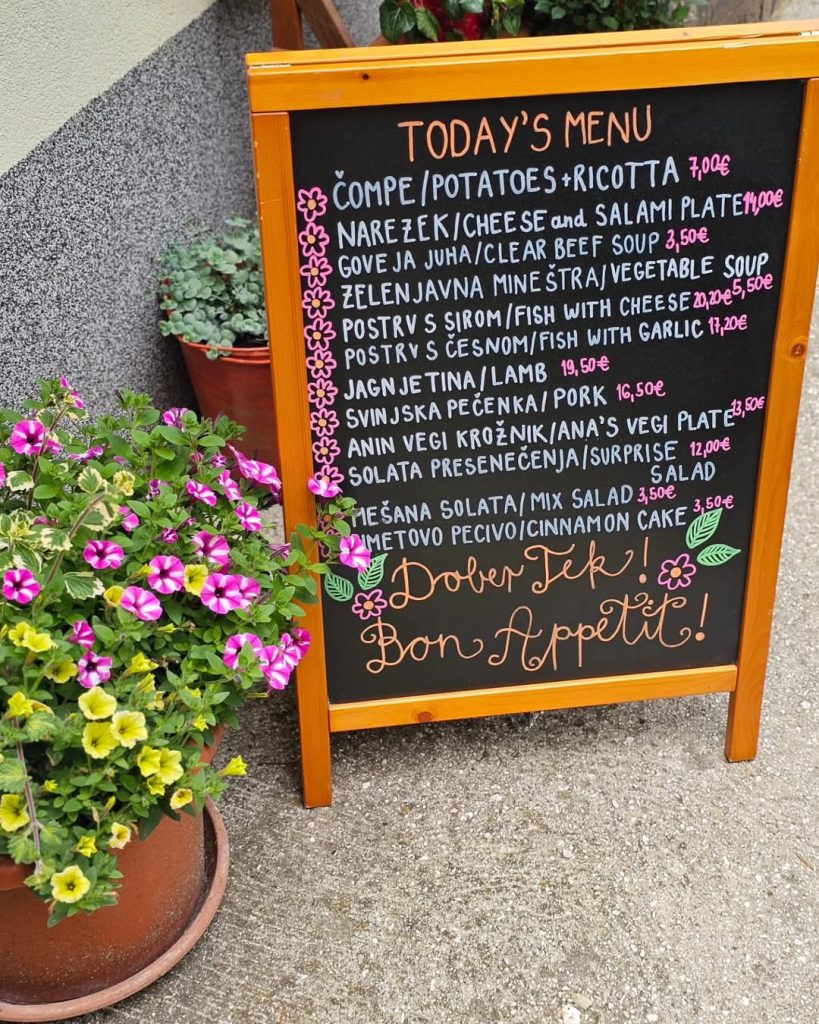 TODAY'S MENU
ČOMPE/POTATOES+RICOTTA 7,00€
NAREZEK/CHEESE and SALAMI PLATE 14,00€
GOVEJA JUHA/CLEAR BEEF SOUP 3,50€
ZELENJAVNA MINEŠTRA/VEGETABLE SOUP 5,50€
POSTRV S SIROM/FISH WITH CHEESE 20,20€
POSTRV S ČESNOM/FISH WITH GARLIC 17,20€
JAGNJETINA/LAMB 19,50€
SVINJSKA PEČENKA/PORK 16,50€
ANIN VEGI KROŽNIK/ANA'S VEGI PLATE 13,50€
SOLATA PRESENEČENJA/SURPRISE SALAD 12,00€
MEŠANA SOLATA/MIX SALAD 3,50€
IMETOVO PECIVO/CINNAMON CAKE 3,50€
Dober Tek!
Bon Appetit!